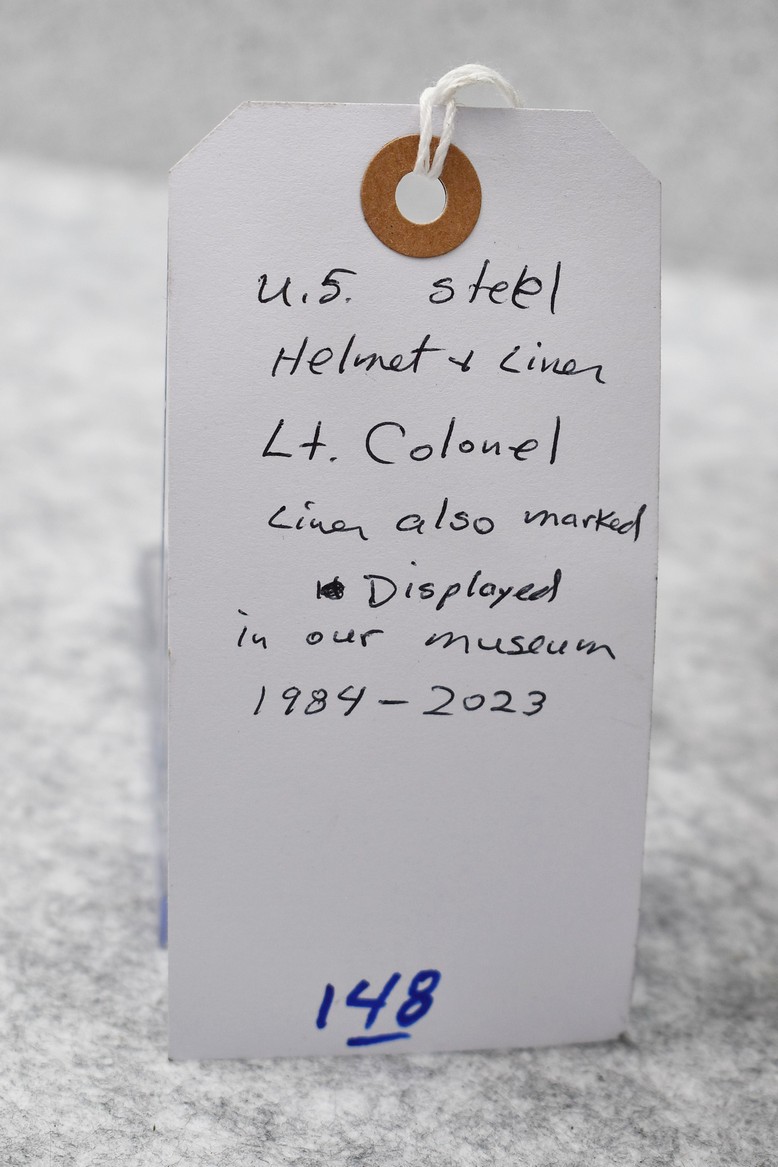 U.S. steel
Helmet & Liner
Lt. Colonel
Liner also marked
Displayed
in our museum
1984-2023
148